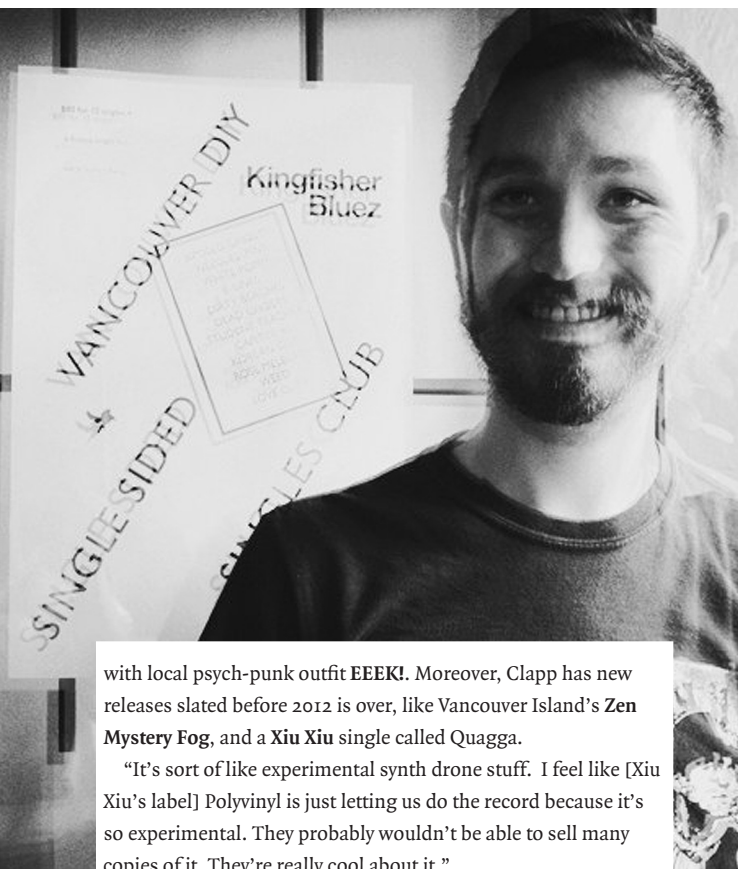 VANCOUVER DIY
Kingfisher
Bluez
SINGLE SIDED
SINGLES CLUB
with local psych-punk outfit EEEK!. Moreover, Clapp has new
releases slated before 2012 is over, like Vancouver Island’s Zen
Mystery Fog, and a Xiu Xiu single called Quagga.
“It’s sort of like experimental synth drone stuff.  I feel like [Xiu
Xiu’s label] Polyvinyl is just letting us do the record because it’s
so experimental. They probably wouldn’t be able to sell many
copies of it. They’re really cool about it.”